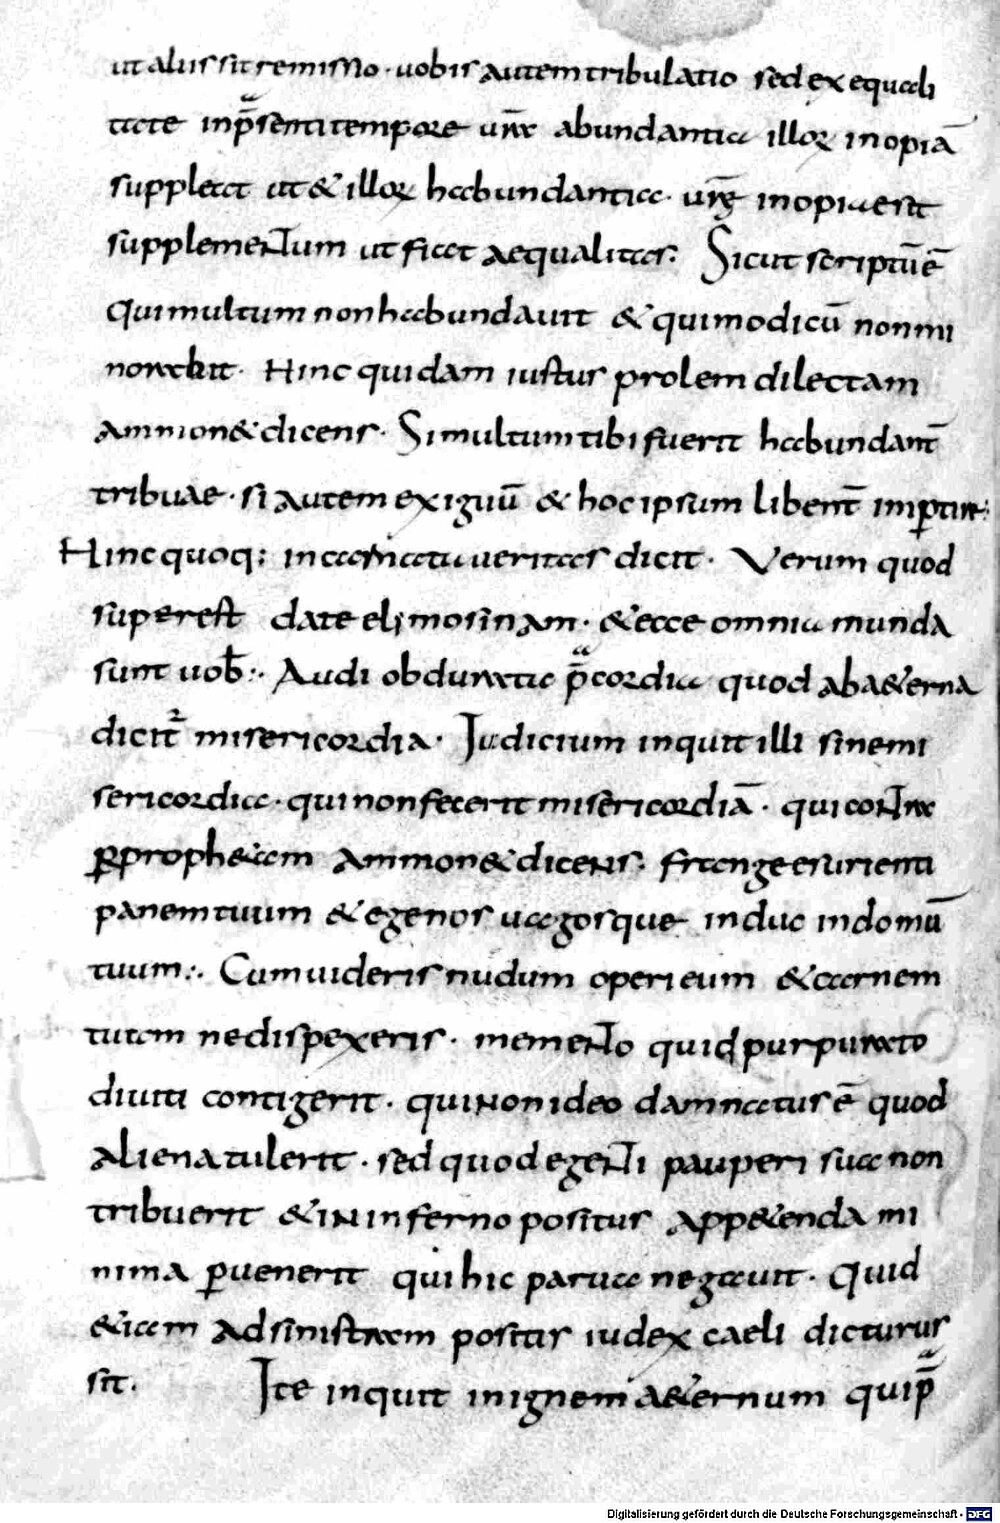 ut aliis sit remissio · uobis autem tribulatio sed ex equali
tate inp̄ᵃsenti tempore ur̄a abundantia illoꝝ inopiā
suppleat ut & illoꝝ habundantia · ur̄ę inopiae sit
supplementum ut fiat aequalitas : Sicut scriptū ē
Qui multum non habundauit & qui modicū non mi
norabit · Hinc quidam iustus prolem dilectam
ammon& dicens · Si multum tibi fuerit habundant̄
tribuae · si autem exiguū & hoc ipsum libent̄ imꝑtire :
Hinc quoq; incarnata ueritas dicit · Verum quod
superest date elimosinam · & ecce omnia munda
sunt uob̄ :· Audi obdurata p̄ᵃcordia quod ab a&erna
dicit̄ᷣ misericordia · Iudicium inquit illi sine mi
sericordia · qui non fecerit misericordiā · qui contra
ꝑ proph&am ammon& dicens · frange esurienti
panem tuum & egenos uagosque induc in domū
tuum :· Cum uideris nudum operi eum & carnem
tuam ne dispexeris · memento quid purpurato
diuiti contigerit · qui non ideo damnatus ē quod
aliena tulerit · sed quod egenti pauperi sua non
tribuerit & in inferno positus app&enda mi
nima ꝑuenerit qui hic parua negauit · Quid
&iam ad sinistram positis iudex caeli dicturus
sit · Ite inquit in ignem a&ernum qui p̄ᵃ
Digitalisierung gefördert durch die Deutsche Forschungsgemeinschaft - DFG